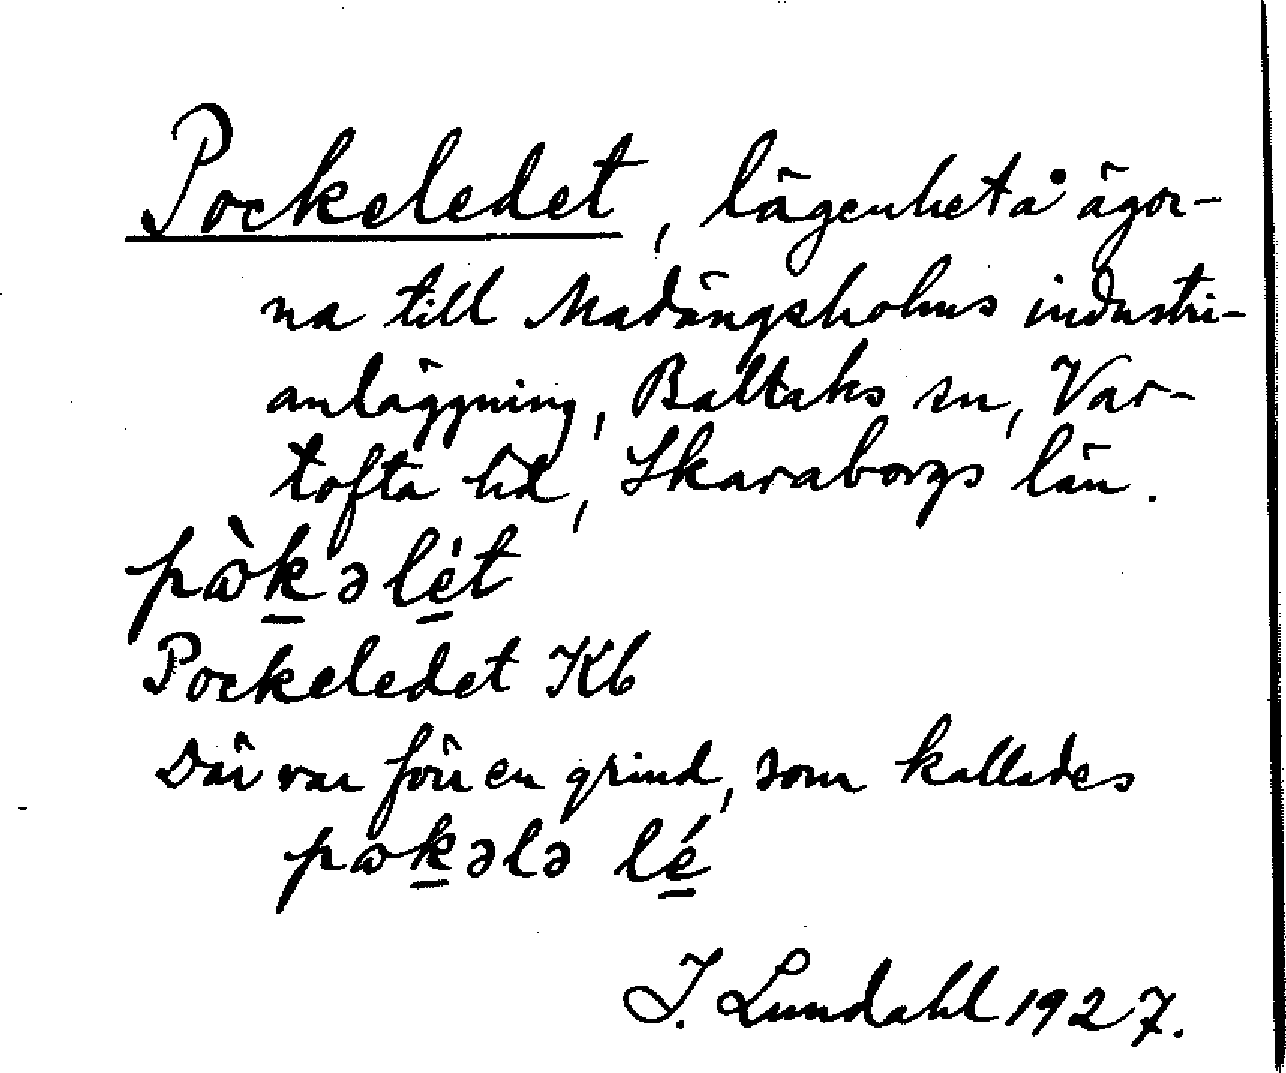 Pockeledet, lägenhet å ägor-
na till Madängsholms industri-
anläggning, Baltaks sn, Var-
tofta hd, Skaraborgs län.
pὼk̲əlé̲t
Pockeledet Kb
Där var förr en grind, som kallades
pωk̲ələ lé̲
I. Lundahl 1927.